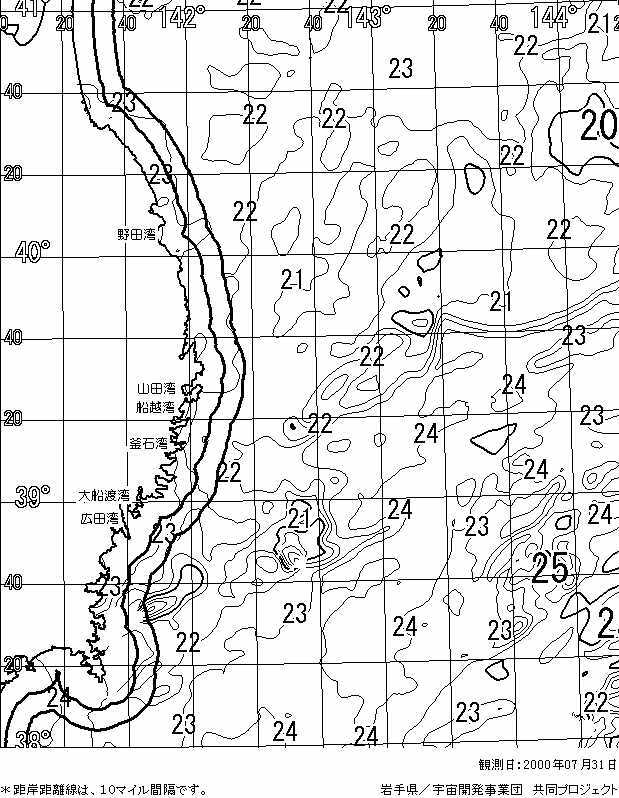 41° 20 142° 22 20 40 22 143° 20 40 144° 20 21
22
23
40 23 22 22 20
22
20 23
22
野田湾 22 22
40°
21 21
40 22 23
山田湾 24
船越湾 23
20 22 24
釜石湾
22 24
大船渡湾 39°
広田湾 21 24 23 24
23
25
40 23
23 24 23 2
22
20
24 22
23 23
38° 24 24
観測日:2000年07月31日
＊距岸距離線は、10マイル間隔です。 岩手県／宇宙開発事業団 共同プロジェクト